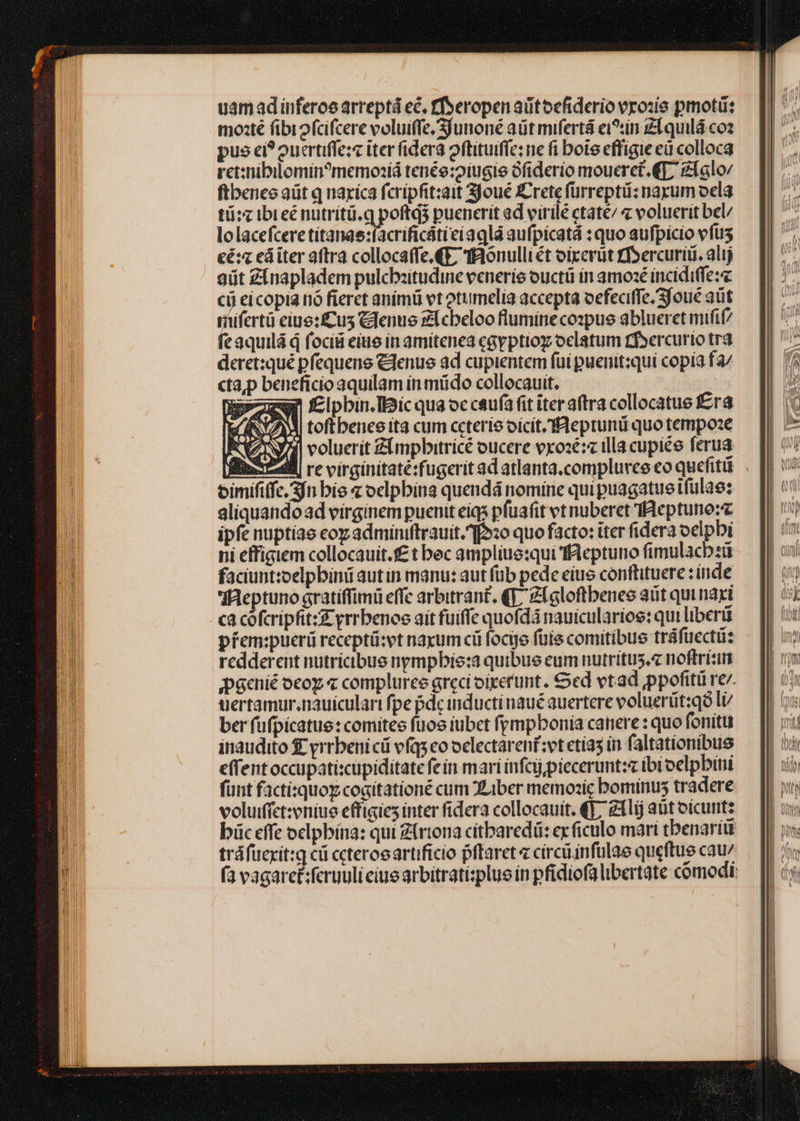 uam ad inferos arreptā eē. Meropen aūt desiderio vxoris pmotū:
mortē sibi ↄsciscere voluisse. Junonē aūt misertā ei⁹: in Aquilā cor
pus ei⁹ ↄuertisse: ⁊ iter sidera ↄstituisse: ne si hoīs effigie eū colloca
ret: nihilomin⁹ memoriā tenēs: ↄiugis ōsiderio moueret̄. ¶ Aglo/
sthenes aūt q naxica scripsit: ait Jouē Crete surreptū: naxum dela
tū: ⁊ ibi eē nutritū. q postqȝ puenerit ad virilē ętatē/ ⁊ voluerit bel/
lo lacescere titanas: sacrificāti ei aqlā auspicatā: quo auspicio vsuȝ
eē: ⁊ eā iter astra collocasse. ¶ Nōnulli ēt dixerūt Mercuriū. alij
aūt Anapladem pulchritudine veneris ductū in amorē incidisse: ⁊
cū ei copia nō fieret animū vt ↄtumelia accepta defecisse. Jouē aūt
misertū eius: Cuȝ Uenus Acheloo flumine corpus ablueret misis/
se aquilā q̄ sociū eius in amitenea ęgyptioꝝ delatum Mercurio tra
deret: quē psequens Uenus ad cupientem sui puenit: qui copia fa/
cta, p beneficio aquilam in mūdo collocauit.
Elphin. Hic qua de causa sit iter astra collocatus Era
tosthenes ita cum cęteris dicit. Neptunū quo tempore
voluerit Amphitricē ducere vxorē: ⁊ illa cupiēs serua
re virginitatē: fugerit ad atlanta. complures eo quęsitū
dimisisse. In his ⁊ delphina quendā nomine qui puagatus isulas:
aliquando ad virginem puenit eiqȝ psuasit vt nuberet Neptuno: ⁊
ipse nuptias eoꝝ administrauit. Pro quo facto: iter sidera delphi
ni effigiem collocauit. Et hec amplius: qui Neptuno simulachrū
faciunt: delphinū aut in manu: aut sub pede eius constituere: inde
Neptuno gratissimū esse arbitrant̄. ¶ Aglosthenes aūt qui naxi
ca cōscripsit: Tyrrhenos ait fuisse quosdā nauicularios: qui liberū
pr̄em: puerū receptū: vt naxum cū socijs suis comitibus trāsuectū:
redderent nutricibus nymphis: a quibus eum nutrituȝ. ⁊ nostri: in
ꝓgenie deoꝝ ⁊ complures greci dixerunt. Sed vt ad ꝓpositū re/.
uertamur. nauiculari spe pdę inducti nauē auertere voluerūt: qd̄ li/
ber suspicatus: comites suos iubet symphonia canere: quo sonitu
inaudito Tyrrheni cū vsqȝ eo delectarent̄: vt etiaȝ in saltationibus
essent occupati: cupiditate se in mari inscij, piecerunt: ⁊ ibi delphini
sunt facti: quoꝝ cogitationē cum Liber memorię hominuȝ tradere
voluisset: vnius effigieȝ inter sidera collocauit. ¶ Alij aūt dicunt:
hūc esse delphina: qui Ariona citharedū: ex siculo mari thenariū
trāsuexit: q cū cęteros artificio pstaret ⁊ circū insulas quęstus cau/
sa vagaret̄: seruuli eius arbitrati: plus in psidiosa libertate cōmodi